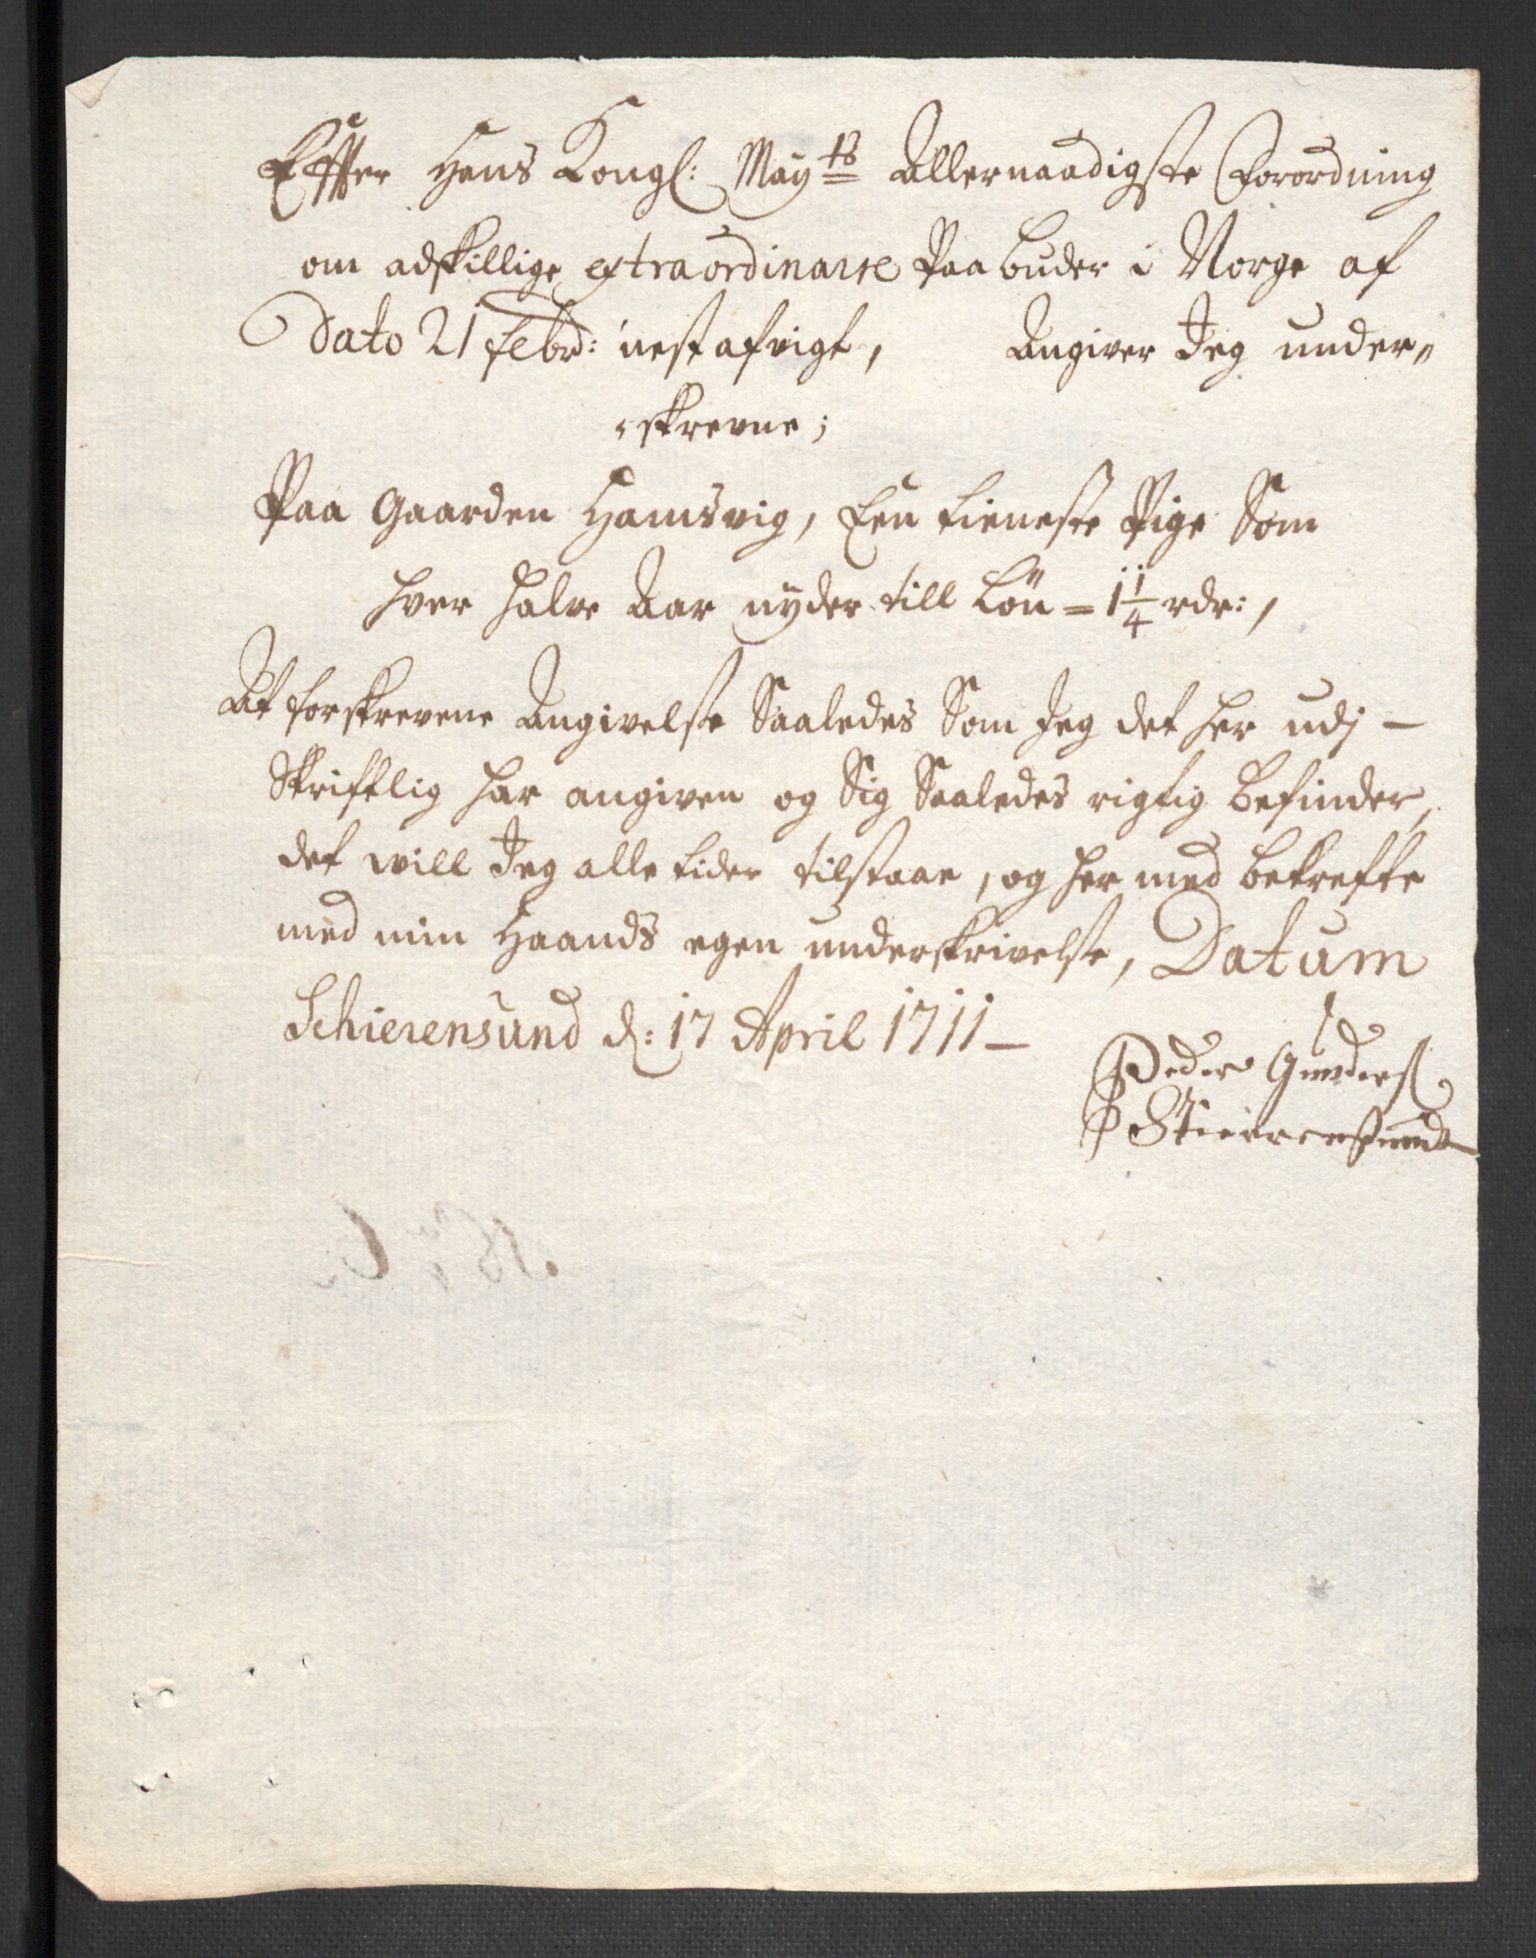 Effter Hans Kongl: May.ts Allernaadigste Forordning
om adskillige extraordinaire Paabuder i Norge af
Dato 21 febr: nest afvigt, Angiver Jeg under„
„skrevne;
Paa Gaarden Hamsvig, Een tieneste Pige Som
hver halve Aar nyder till Løn = 1 1/4 rdr:,
At forskrevene Angivelse Saaledes Som Jeg det her udj –
Skrifftlig har angiven og Sig Saaledes rigtig befinder,
det will Jeg alle tider tilstaae, og her med bekrefte
med min Haands egen underskrivelse, Datum
Schierensund d: 17 April 1711 –
Peder Gunders